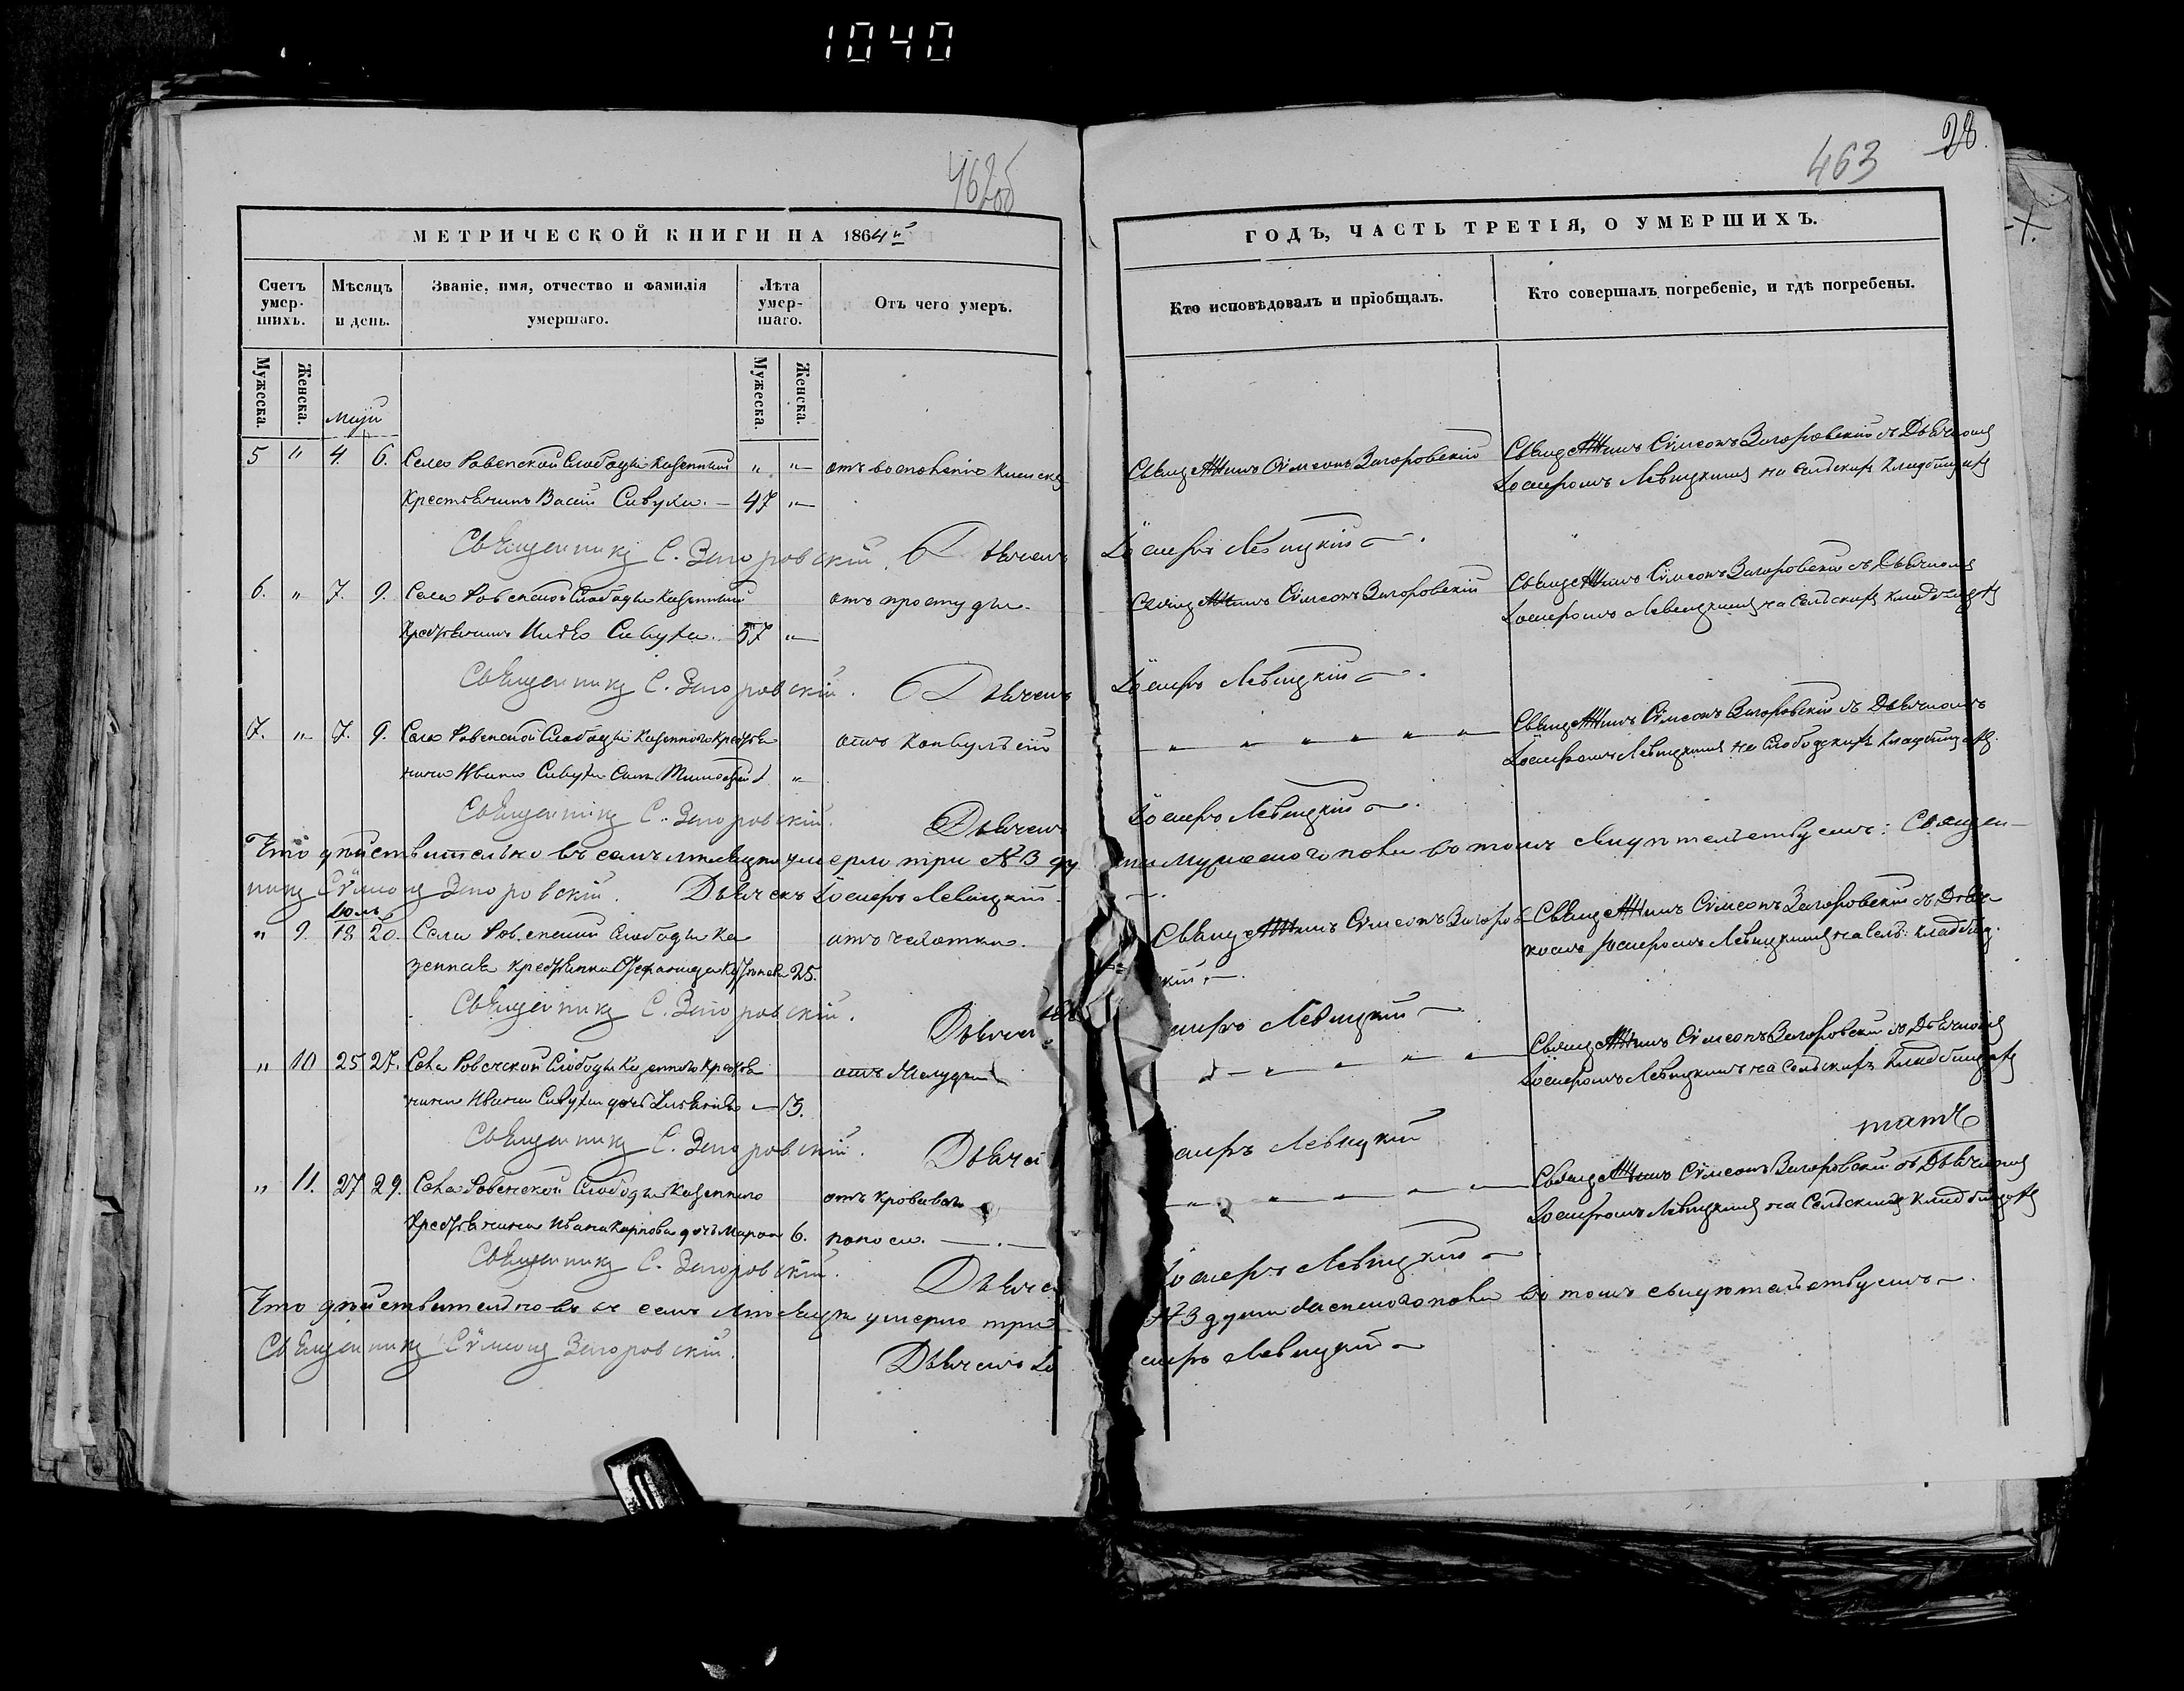 1040
462об
463
28.
МЕТРИЧЕСКОЙ КНИГИ НА 1864й
ГОДЪ, ЧАСТЬ ТРЕТІЯ, О УМЕРШИХЪ.
Счетъ умер-шихъ.
Мѣсяцъ и день.
Званіе, имя, отчество и фамилія умершаго.
Лѣта умер-шаго.
Отъ чего умеръ.
Кто исповѣдовалъ и пріобщалъ.
Кто совершалъ погребеніе, и гдѣ погребены.
Мужеска.
Женска.
Мужеска.
Женска.
Маій
5 " 4. 6. Села Ровенской Слободы Казенный " " отъ восполенія
Священникъ Симеонъ Загоровскій
Священникъ Симеонъ Загоровскій съ Дьячкомъ
Крестьянинъ Василій Сивуха. — 47 "
Іосифомъ Левицкимъ на Сельскихъ кладбищахъ
Священникъ С. Загоровскій. Дьячекъ Іосифъ Левицкій
6. " 7. 9. Села Ровенской Слободы Казенный отъ простуды.
Священникъ Симеонъ Загоровскій
Священникъ Симеонъ Загоровскій съ Дьячкомъ
Крестьянинъ Сивуха. 57 "
Іосифомъ Левицкимъ на Сельскихъ кладбищахъ
Священникъ С. Загоровскій. Дьячекъ Іосифъ Левицкій
7. " 7. 9. Села Ровенской Слободы Казеннаго Крестья отъ конвульсій
" " " " " "
Священникъ Симеонъ Загоровскій съ Дьячкомъ
нина Ивана Сивухи Сынъ Тимофей 1 "
Іосифомъ Левицкимъ на Слободскихъ кладбищахъ.
Священникъ С. Загоровскій. Дьячекъ Іосифъ Левицкій
Что дѣйствительно въ семъ мѣсяцѣ умерло три № 3 ду
ши мужескаго пола въ томъ свидѣтельствуемъ: Священ-
никъ Сѵмеонъ Загоровскій. Дьячекъ Іосифъ Левицкій
Іюль
" 9. 18 20. Села Ровенской Слободы Ка отъ чахотки.
Священникъ Симеонъ Загоров
Священникъ Симеонъ Загоровскій съ Дьяч-
зенная Крестьянка 25.
скій.
комъ Іосифомъ Левицкимъ на Сель: кладбищ.
Священникъ С. Загоровскій. Дьячекъ
сифъ Левицкій
" 10 25 27. Села Ровенской Слободы Казеннаго Крестья отъ
Священникъ Симеонъ Загоровскій съ Дьячкомъ
нина Ивана Сивухи дочь — 3.
Іосифомъ Левицкимъ на Сельскихъ кладбищахъ
Священникъ С. Загоровскій. Дьяче
сифъ Левицкій
" 11. 27 29. Села Ровенской Слободы Казеннаго отъ кроваваго
Священникъ Симеонъ Загоровскій съ Дьячкомъ
Крестьянина Ивана Карпова дочь 6. поноса.
Іосифомъ Левицкимъ на Сельскихъ кладбищахъ
Священникъ С. Загоровскій. Дьяче
Іосифъ Левицкій
Что дѣйствительно въ семъ мѣсяцѣ умерло три
№ 3 души женскаго пола въ томъ свидѣтельствуемъ
Священникъ Сѵмеонъ Загоровскій. Дьячекъ Іо
сифъ Левицкій